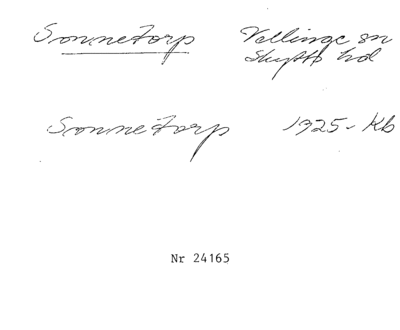 Sonnetorp Vellinge sn
Skytts hd
Sonnetorp 1925 - Kb
Nr 24165